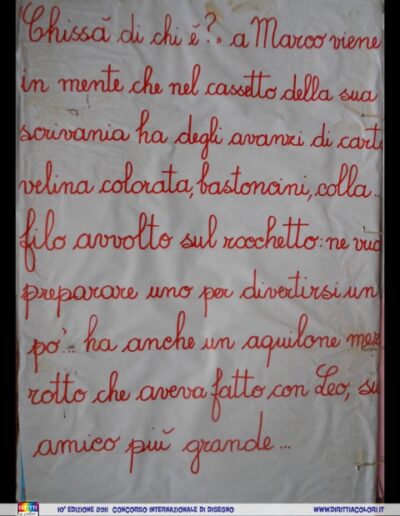 Chissà di chi è?» a Marco viene
in mente che nel cassetto della sua
scrivania ha degli avanzi di cart
velina colorata, bastoncini, colla..
filo avvolto sul rocchetto: ne vuo
preparare uno per divertirsi un
po'... ha anche un aquilone mez
rotto che aveva fatto con Leo, su
amico più grande...
10° EDIZIONE 2011 CONCORSO INTERNAZIONALE DI DISEGNO
WWW.DIRITTIACOLORI.IT